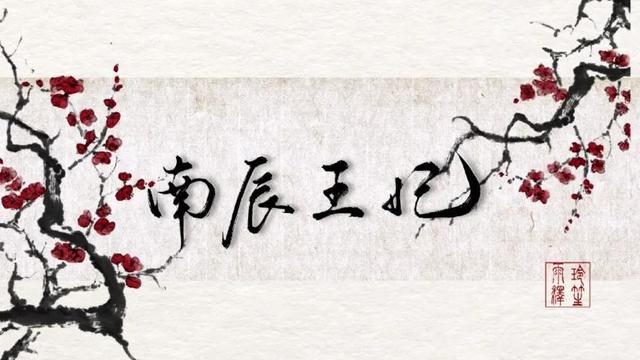 南辰王妃
玲笙
雨澤